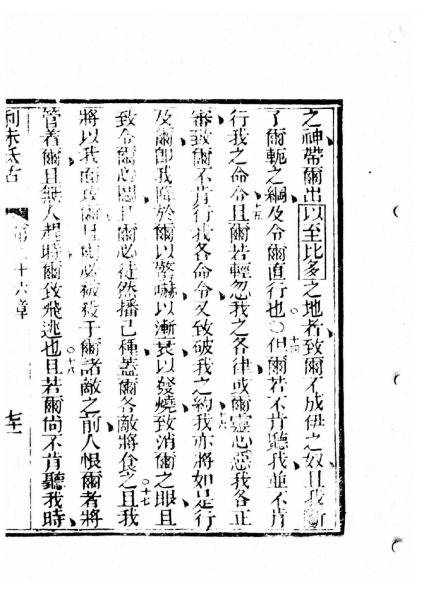 之神帶爾出以至比多之地者致爾不成伊之奴且我斷
了爾軛之綱及令爾直行也○十四但爾若不肯聽我並不肯
行我之命令十五且爾若輕忽我之各律或爾靈心惡我各正
審致爾不肯行我各命令又致破我之約十六我亦將如是行
及爾卽我降於爾以驚嚇以漸衰以發燒致消爾之眼且
致令爾心憂且爾必徒然播己種蓋爾各敵將食之十七且我
將以我面攻爾且爾必被殺于爾諸敵之前人恨爾者將
管着爾且無人趕時爾致飛逃也○十八且若爾尙不肯聽我時
利未氐古
第二十六章
七十一